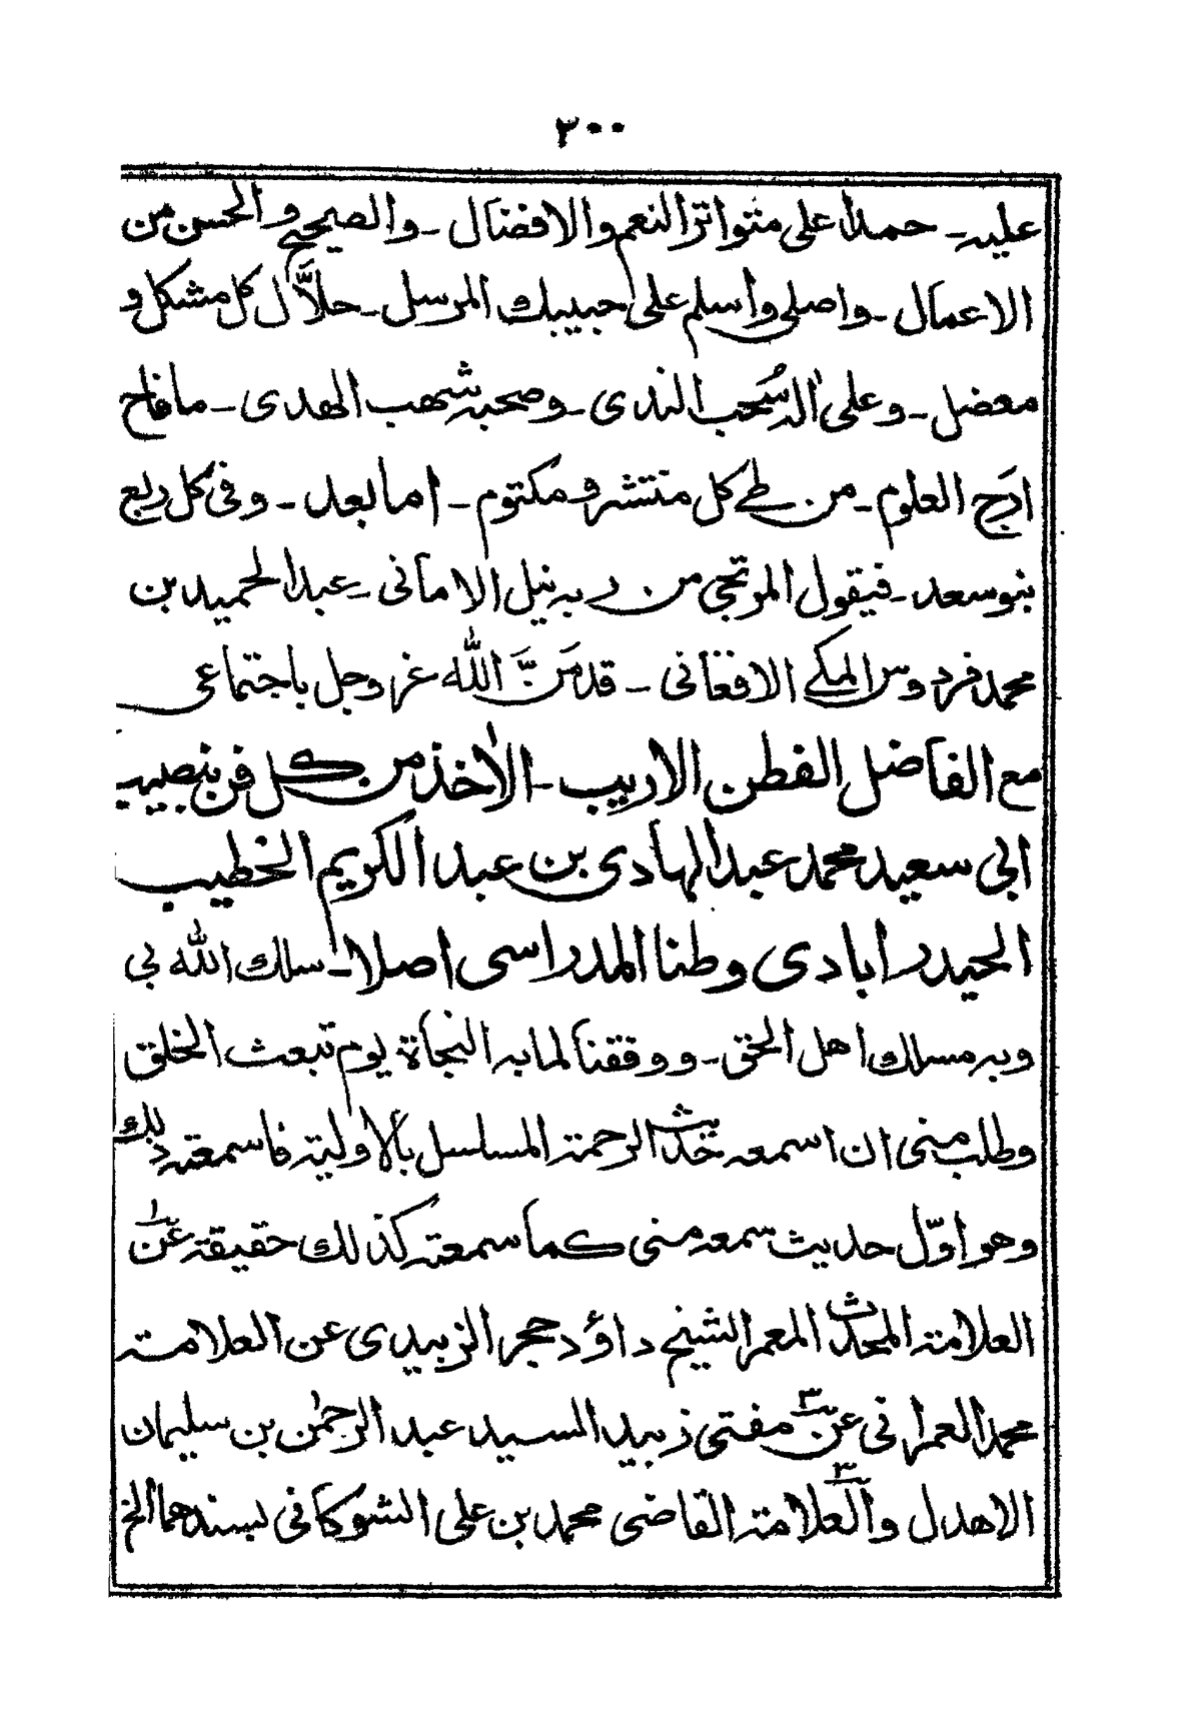 ٣٠٠
عليه ـ حمداً على متواتر النعم والافضال ـ والصحيح والحسن من
الاعمال ـ واصلى واسلم على حبيبك المرسل ـ حلاَّل كل مشكل و
معضل ـ وعلى اٰله سُحب الندى ـ وصحبه شهب الهدى ـ ما فاح
ارَج العلوم ـ من طے كل منتشر و مكتوم ـ اما بعد ـ وفى كل ربع
بنو سعد ـ فيقول المرتجى من ربه نيل الامانى ـ عبد الحميد بن
محمد فردوس المكے الافغانى ـ قد مَنَّ اللّٰه عز وجل باجتماعى
مع الفاضل الفطن الاريب ـ الاٰخذ من كل فن بنصيب
ابى سعيد محمد عبد الهادى بن عبد الكريم الخطيب
الحيدر ابادى وطنا المدراسى اصلا ـ سلك اللّٰه بى
وبه مسلك اهل الحق ـ ووفقنا لما به النجاة يوم تبعث الخلق
وطلب منى ان اسمعه حديث الرحمة المسلسل بالاولية فاسمعته ذلك
وهو اوّل حديث سمعه منى كما سمعته كذلك حقيقة عن ١
العلامة المحدث المعمر الشيخ داؤد حجر الزبيدى عن العلامة
محمد العمرانى عن ٢ مفتى زبيد السيد عبد الرحمٰن بن سليمان
الاهدل والعلامة ٣ القاضى محمد بن على الشوكانى بسندهما الخ